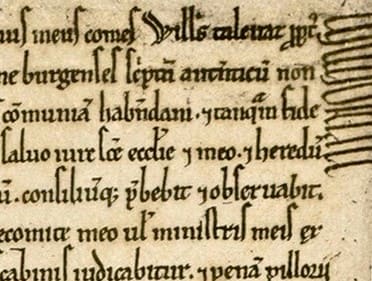 us meus comes Willꝰs talenat ppt̄
ne burgenses sc̄ptū autenticū non
cōmuniā habn̄dam. ⁊ tanqͣm fide
saluo iure sc̄e eccl̄ie ⁊ meo. ⁊ heredū
ū. consiliūq; p̄bebit ⁊ obseruabit.
ecomite meo ul̓ ministris meis ex
cabinis iudicabitur. ⁊ penā pillorii